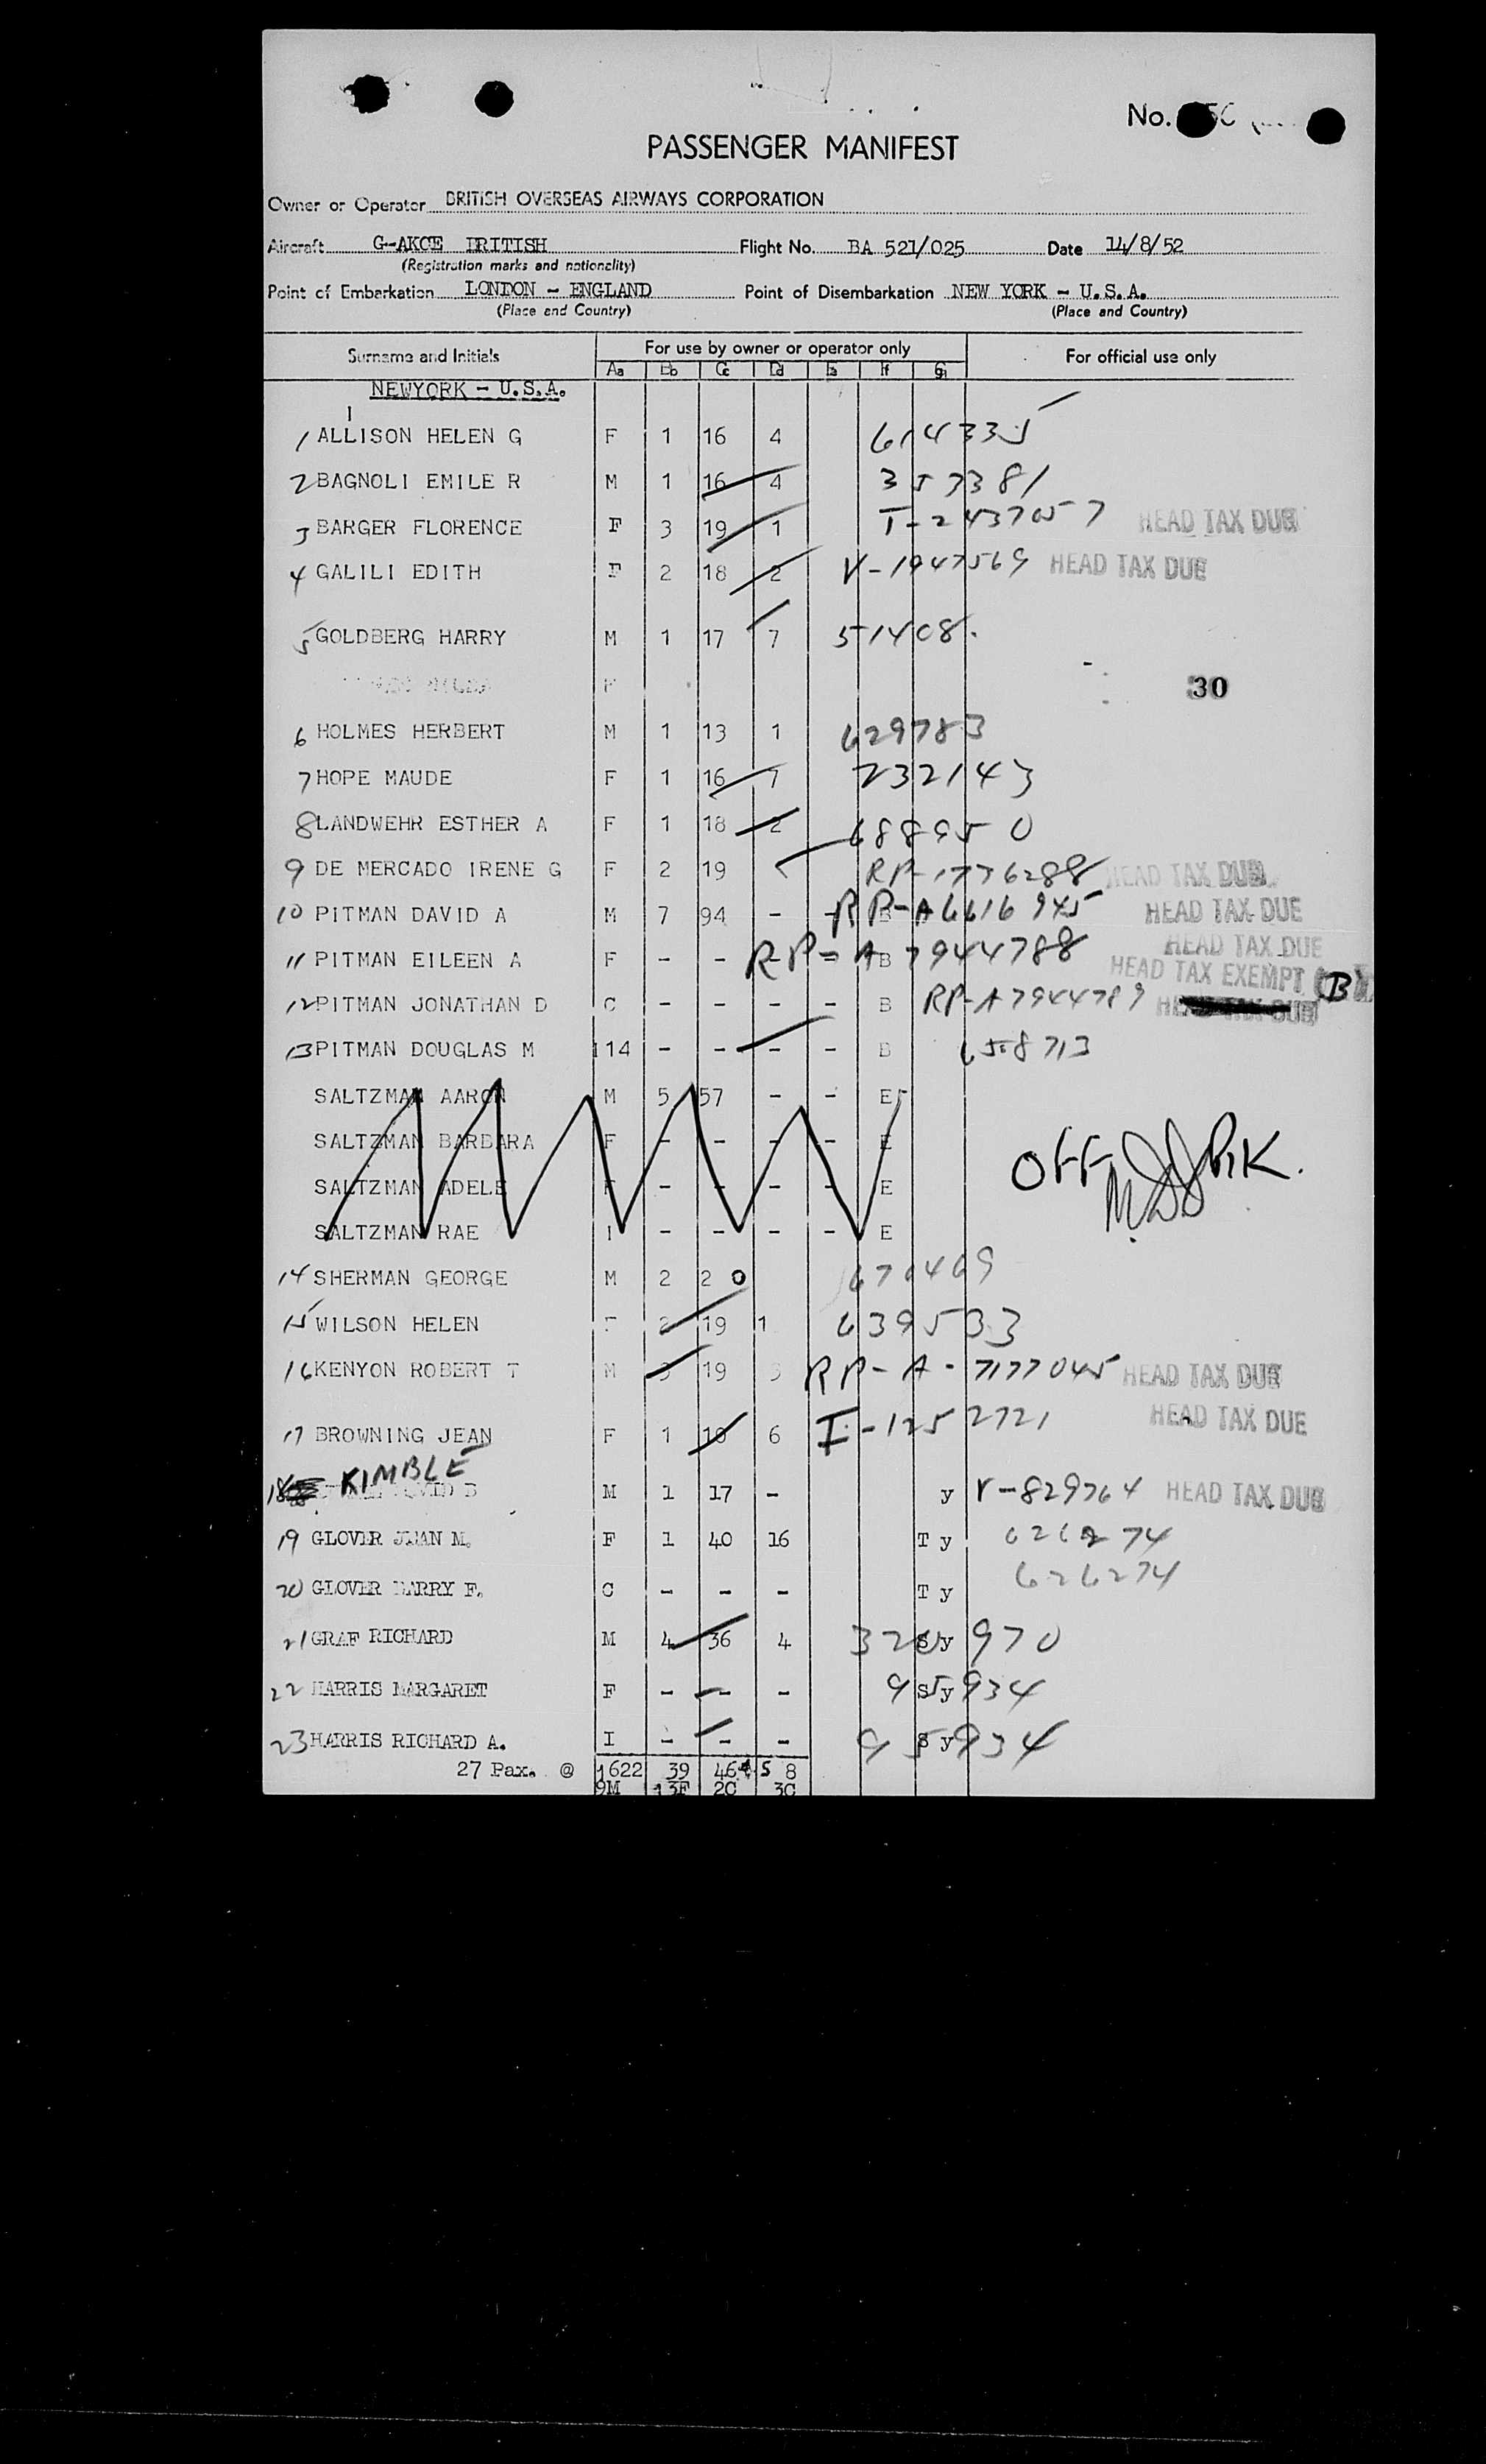 No.
PASSENGER MANIFEST
Owner or Operator BRITISH OVERSEAS AIRWAYS CORPORATION
Aircraft G-AKCE BRITISH Flight No. BA 521/025 Date 14/8/52
(Registration marks and nationality)
Point of Embarkation LONDON - ENGLAND Point of Disembarkation NEW YORK - U.S.A.
(Place and Country) (Place and Country)
Surname and Initials For use by owner or operator only For official use only
Aa Bb Cc Dd Ee Ff Gg
NEWYORK - U.S.A.
1 ALLISON HELEN G F 1 16 4 614335
2 BAGNOLI EMILE R M 1 16 4 357381
3 BARGER FLORENCE F 3 19 1 T-2437057 HEAD TAX DUE
4 GALILI EDITH F 2 18 2 V-1947569 HEAD TAX DUE
5 GOLDBERG HARRY M 1 17 7 51408.
30
6 HOLMES HERBERT M 1 13 1 629783
7 HOPE MAUDE F 1 16 7 232143
8 LANDWEHR ESTHER A F 1 18 2 688950
9 DE MERCADO IRENE G F 2 19 RP-1776288 HEAD TAX DUE
10 PITMAN DAVID A M 7 94 - - B RP-A6616945 HEAD TAX DUE
11 PITMAN EILEEN A F - - - - B RP-A7944788 HEAD TAX DUE
HEAD TAX EXEMPT (B)
12 PITMAN JONATHAN D C - - - - B RP-A7944789
13 PITMAN DOUGLAS M I14 - - - - B 658713
SALTZMAN AARON M 5 57 - - E
SALTZMAN BARBARA F - - - - E
SALTZMAN ADELE F - - - - E OFF PIK.
SALTZMAN RAE I - - - - E
14 SHERMAN GEORGE M 2 20 670469
15 WILSON HELEN F 2 19 1 639533
16 KENYON ROBERT T M 3 19 3 RP-A-7177045 HEAD TAX DUE
17 BROWNING JEAN F 1 18 6 I-1252721 HEAD TAX DUE
18 KIMBLE M 1 17 - y V-829764 HEAD TAX DUE
19 GLOVER JOAN M. F 1 40 16 T y 626274
20 GLOVER BARRY F. C - - - T y 626274
21 GRAF RICHARD M 4 36 4 S y 320970
22 HARRIS MARGARET F - - - S y 95934
23 HARRIS RICHARD A. I - - - S y 95934
27 Pax. @ 1622 39 464 58
9M 13F 2C 3C